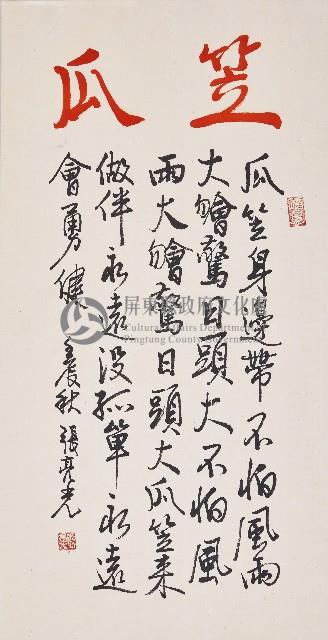 瓜笠
瓜笠身邊帶不怕風雨
大鱠驚日頭大不怕風
雨大鱠驚日頭大瓜笠來
做伴永遠沒孤單永遠
會勇健 壬辰秋 張亮光
屏東縣政府文化處
Cultural Affairs Department,
Pingtung County Government